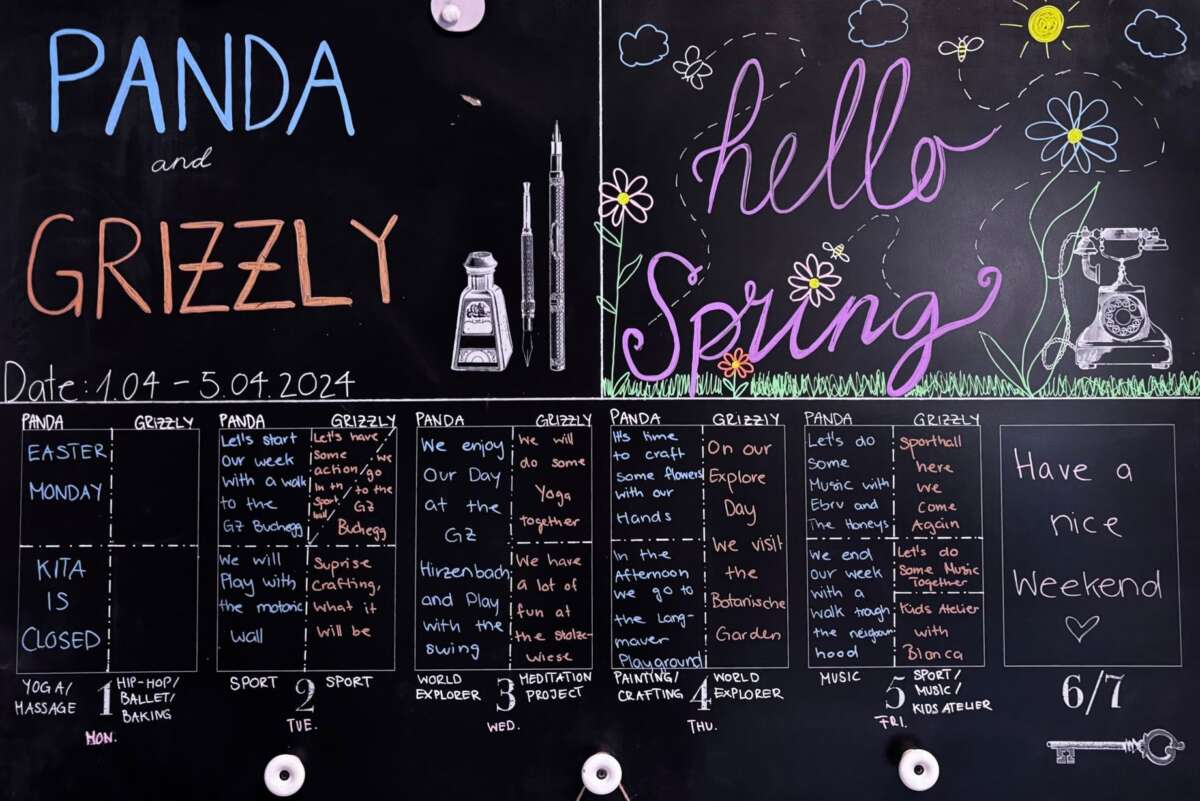 PANDA
and
GRIZZLY
Date: 1.04 - 5.04.2024
hello
Spring
PANDA
GRIZZLY
EASTER
MONDAY
KITA
IS
CLOSED
YOGA/
MASSAGE
1
MON.
HIP-HOP/
BALLET/
BAKING
PANDA
GRIZZLY
Let's start
Our week
with a walk
to the
GZ Buchegg
Let's have
some
action
In th
Sport
hall
we
go
to the
GZ
Buchegg
We will
Play with
the motoric
wall
Suprise
Crafting,
what it
will be
SPORT
2
TUE.
SPORT
PANDA
GRIZZLY
We enjoy
Our Day
at the
GZ
Hirzenbach
and Play
with the
swing
We will
do some
Yoga
together
We have
a lot of
fun at
the Stolze-
wiese
WORLD
EXPLORER
3
WED.
MEDITATION
PROJECT
PANDA
GRIZZLY
It's time
to craft
some flowers
with our
Hands
In the
Afternoon
we go to
the Lang-
mauer
Playground
On our
Explore
Day
we visit
the
Botanische
Garden
PAINTING/
CRAFTING
4
THU.
WORLD
EXPLORER
PANDA
GRIZZLY
Let's do
some
Music with
Ebru and
The Honeys
We end
Our week
with a
walk trough
the neigbour
hood
Sporthall
here
we
Come
Again
Let's do
Some Music
Together
Kids Atelier
with
Bianca
MUSIC
5
FRI.
SPORT/
MUSIC/
KIDS ATELIER
Have a
nice
Weekend
6/7